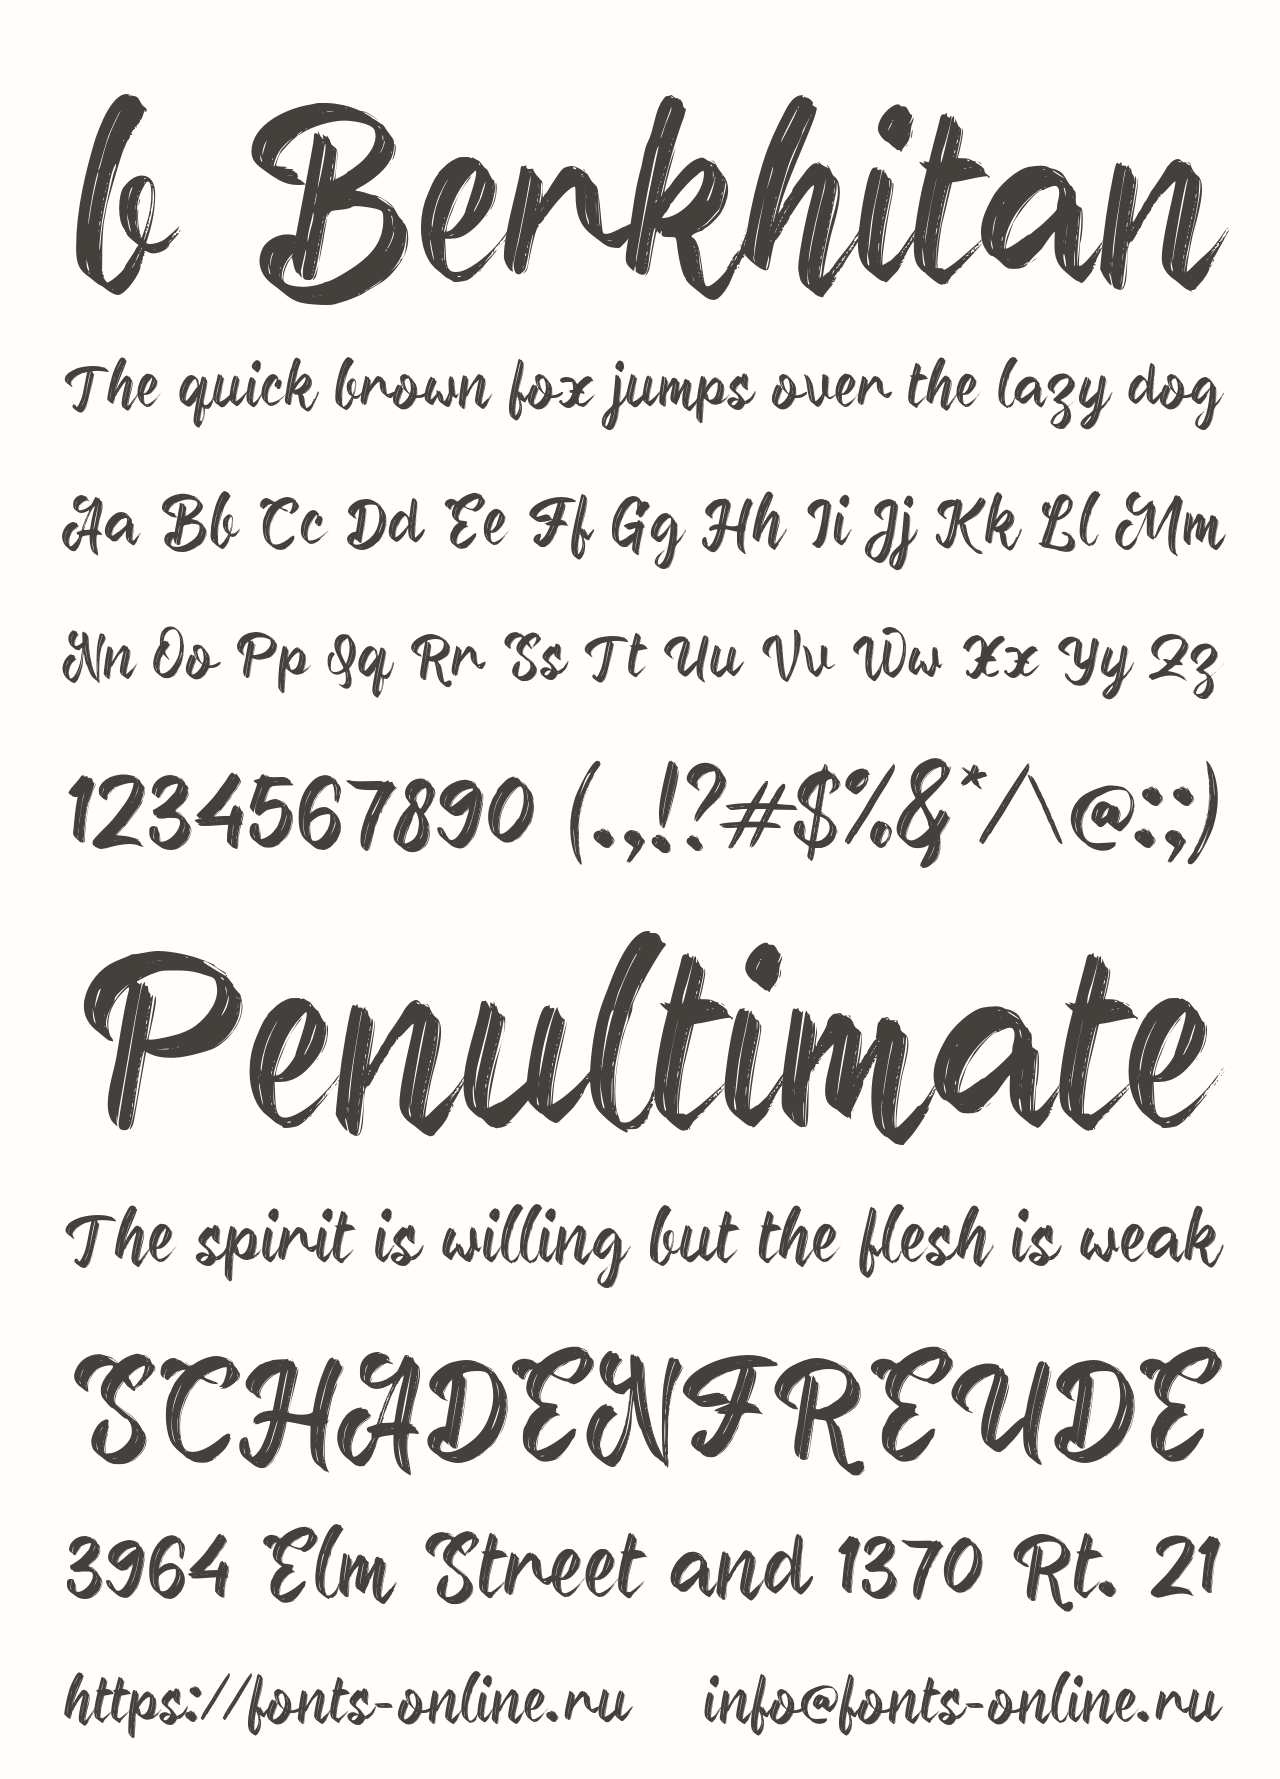 b Berkhitan
The quick brown fox jumps over the lazy dog
Aa Bb Cc Dd Ee Ff Gg Hh Ii Jj Kk Ll Mm
Nn Oo Pp Qq Rr Ss Tt Uu Vv Ww Xx Yy Zz
1234567890 (.,!?#$%&*/\@:;)
Penultimate
The spirit is willing but the flesh is weak
SCHADENFREUDE
3964 Elm Street and 1370 Rt. 21
https://fonts-online.ru info@fonts-online.ru